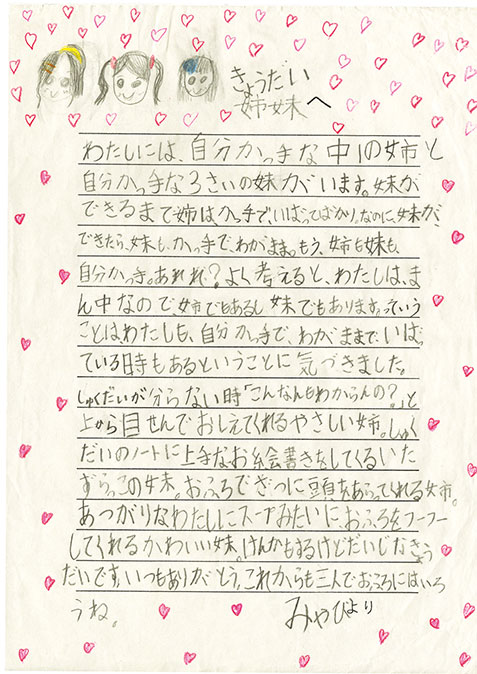 きょうだい
姉妹へ
わたしには、自分かっ手な中1の姉と
自分かっ手な3さいの妹がいます。妹が
できるまで姉は、かっ手で、いばってばかり。なのに、妹が、
できたら、妹も、かっ手で、わがまま。もう、姉も妹も、
自分かっ手。あれれ?よく考えると、わたしは、ま
ん中なので姉でもあるし妹でもあります。っていう
ことは、わたしも、自分かっ手で、わがままで、いばっ
ている時もあるということに気づきました。
しゅくだいが分らない時「こんなんもわからんの?」と
上から目せんでおしえてくれるやさしい姉。しゅく
だいのノートに上手なお絵書きをしてくるいた
ずらっこの妹。おふろでざつに頭をあらってくれる姉。
あつがりなわたしにスープみたいに、おふろをフーフー
してくれるかわいい妹。けんかもするけどだいじなきょう
だいです。いつもありがとう。これからも三人でおふろにはいろ
うね。
みやびより